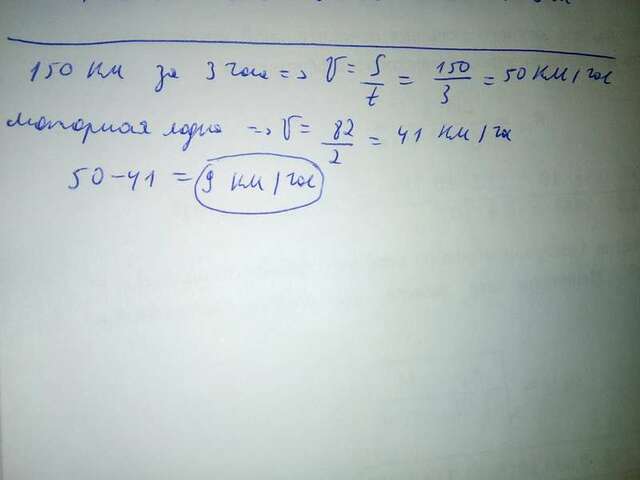 150 км за 3 часа => V = S/t = 150/3 = 50 км/час
моторная лодка => V = 82/2 = 41 км/ча
50 - 41 = 9 км/час